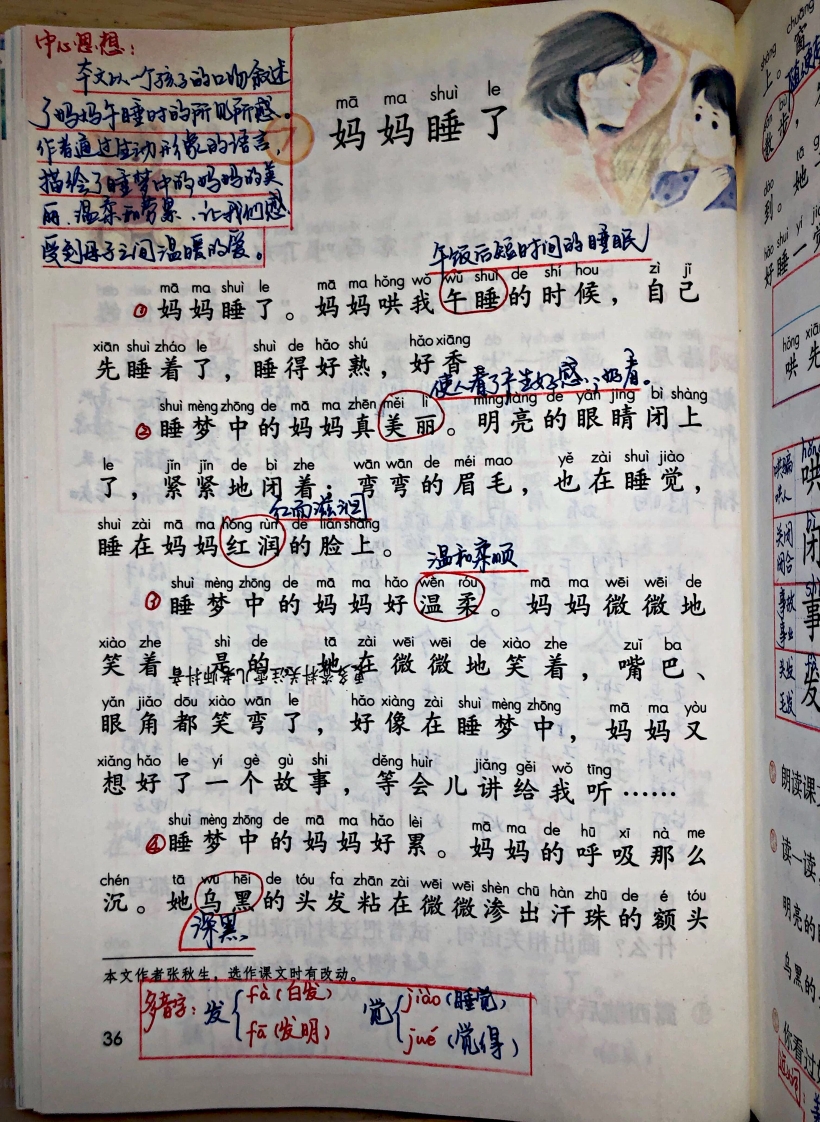 中心思想：
本文以一个孩子的口吻叙述
了妈妈午睡时的所见所感。
作者通过生动形象的语言，
描绘了睡梦中的妈妈的美
丽、温柔和劳累、让我们感
受到母子之间温暖的爱。
7
mā ma shuì le
妈妈睡了
午饭后短时间的睡眠
mā ma shuì le mā ma hǒng wǒ wǔ shuì de shí hou zì jǐ
①妈妈睡了。妈妈哄我午睡的时候，自己
xiān shuì zháo le shuì de hǎo shú hǎo xiāng
先睡着了，睡得好熟，好香。
使人看了产生好感；好看。
shuì mèng zhōng de mā ma zhēn měi lì míng liàng de yǎn jing bì shàng
②睡梦中的妈妈真美丽。明亮的眼睛闭上
le jǐn jǐn de bì zhe wān wān de méi mao yě zài shuì jiào
了，紧紧地闭着；弯弯的眉毛，也在睡觉，
红而滋润
shuì zài mā ma hóng rùn de liǎn shang
睡在妈妈红润的脸上。
温和柔顺
shuì mèng zhōng de mā ma hǎo wēn róu mā ma wēi wēi de
③睡梦中的妈妈好温柔。妈妈微微地
xiào zhe shì de tā zài wēi wēi de xiào zhe zuǐ ba
笑着。是的，她在微微地笑着，嘴巴、
yǎn jiǎo dōu xiào wān le hǎo xiàng zài shuì mèng zhōng mā ma yòu
眼角都笑弯了，好像在睡梦中，妈妈又
xiǎng hǎo le yí gè gù shi děng huìr jiǎng gěi wǒ tīng
想好了一个故事，等会儿讲给我听……
shuì mèng zhōng de mā ma hǎo lèi mā ma de hū xī nà me
④睡梦中的妈妈好累。妈妈的呼吸那么
chén tā wū hēi de tóu fa zhān zài wēi wēi shèn chū hàn zhū de é tóu
沉。她乌黑的头发粘在微微渗出汗珠的额头
深黑。
本文作者张秋生，选作课文时有改动。
多音字：发 fà（白发） fā（发明） 觉 jiào（睡觉） jué（觉得）
36
chuāng
窗
上。
sàn bù
散步，
tā
到。她
hǎo shuì yí jiào
好睡一觉
hǒng xiān
哄 先
哄骗
哄人
哄
关闭
闭合
闭
事故
事业
事
头发
毛发
发
朗读课文
读一读，
明亮的
乌黑的
你看过